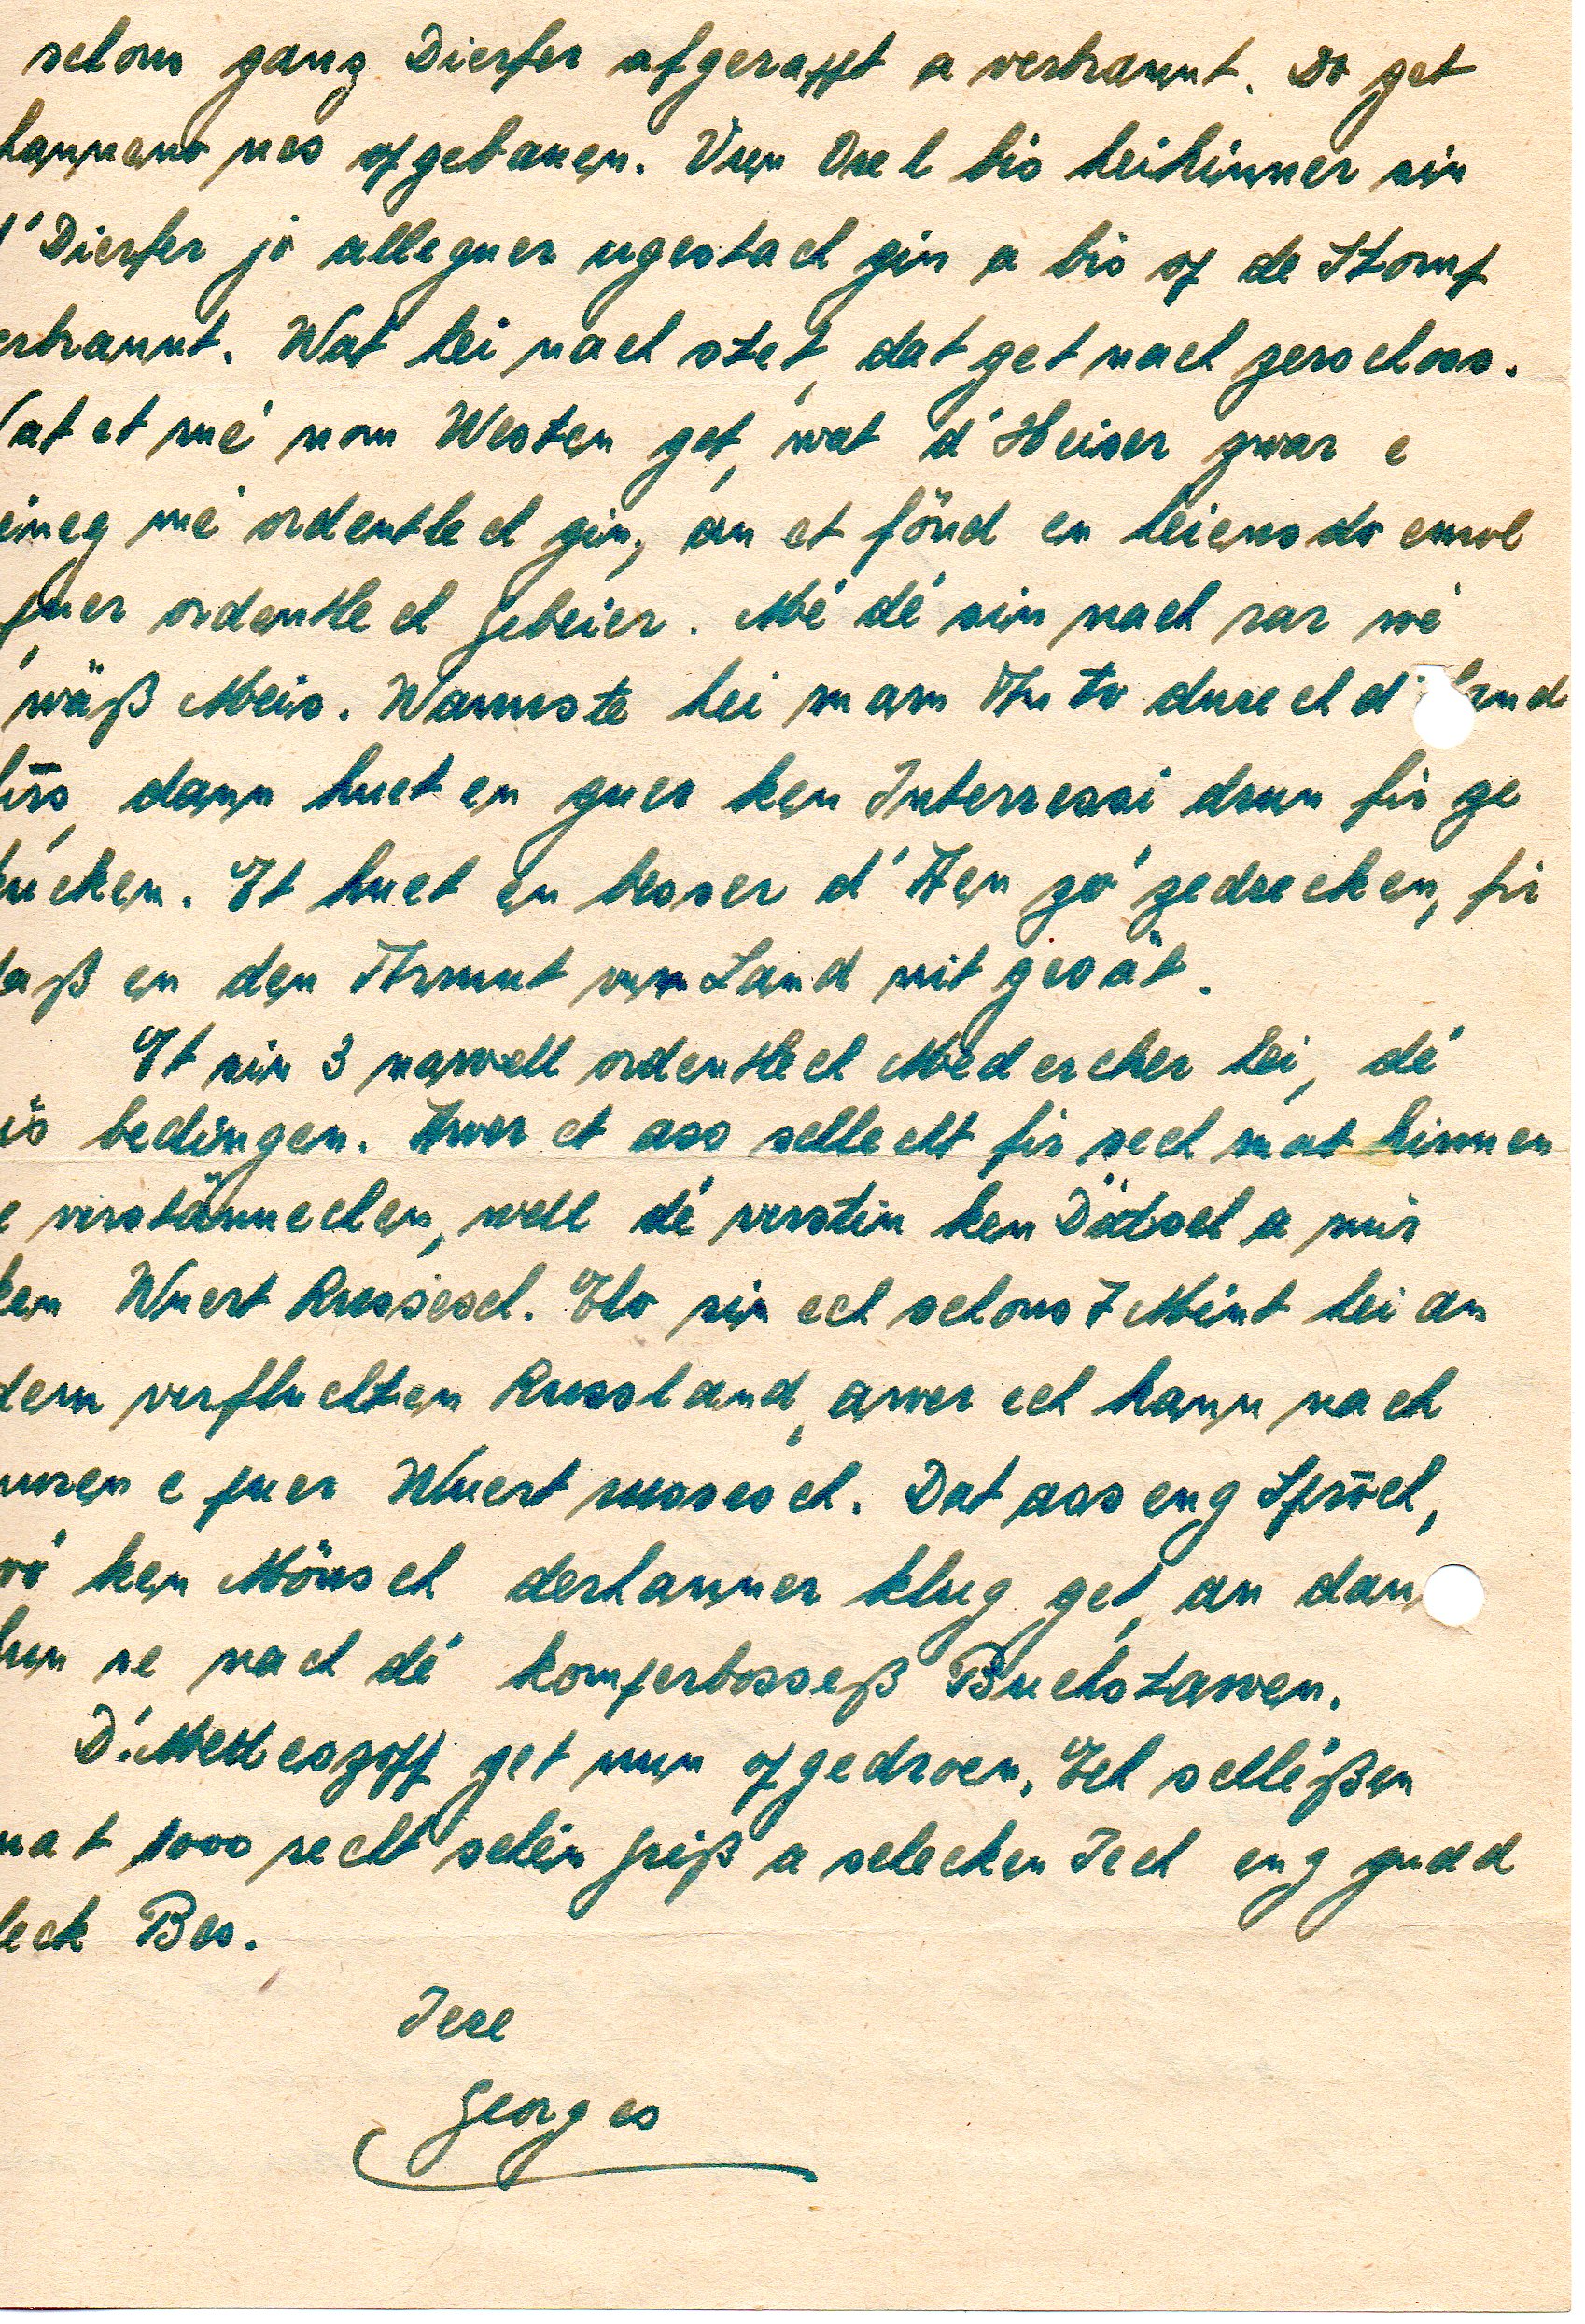 schons ganz Dierfer afgerappt a verbrannt. Do get
hannendro nes opgebauen. Vum Orel bis heihinner sin
d'Dierfer jo alleguer ugestach gin a bis op de Stomp
erbrannt. Wat hei nach stet, dat get nach zerschoss.
Wat et mé nom Westen get, wat d'Heiser zwar e
weineg mé ordentlech gin, an et fönd en heiansdo emol
puer ordentlech Gebeier. Mé dé sin nach rar wé
wäß Meis. Wannste hei mam Auto durech d' Land
firs, dann huet en guer ken Interressi drun fir ze
kucken. Et huet en besser d'Aen zó zedrecken, fir
daß en den Armut vum Land nit gesät.
Et sin 3 nawell ordentlech Medercher hei, dé
is bedingen. Awer et ass schlecht fir sech mat hinnen
e verstännechen, well dé verstin ken Däitsch a mir
ken Wuert Russesch. Elo sin ech schons 7 Mént hei an
dem verfluchten Russland, awer ech kann nach
nuren e puer Wuert russesch. Dat ass eng Sproch,
wó ken Mönsch derhanner klug get, an dan
hun se nach dé komperbosseß Buchstawen.
D'Metteszopp get nun opgedroen. Ech schléßen
mat 1000 recht schéin Griß a schecken Iech eng gudd
deck Bes.
Iere
Georges